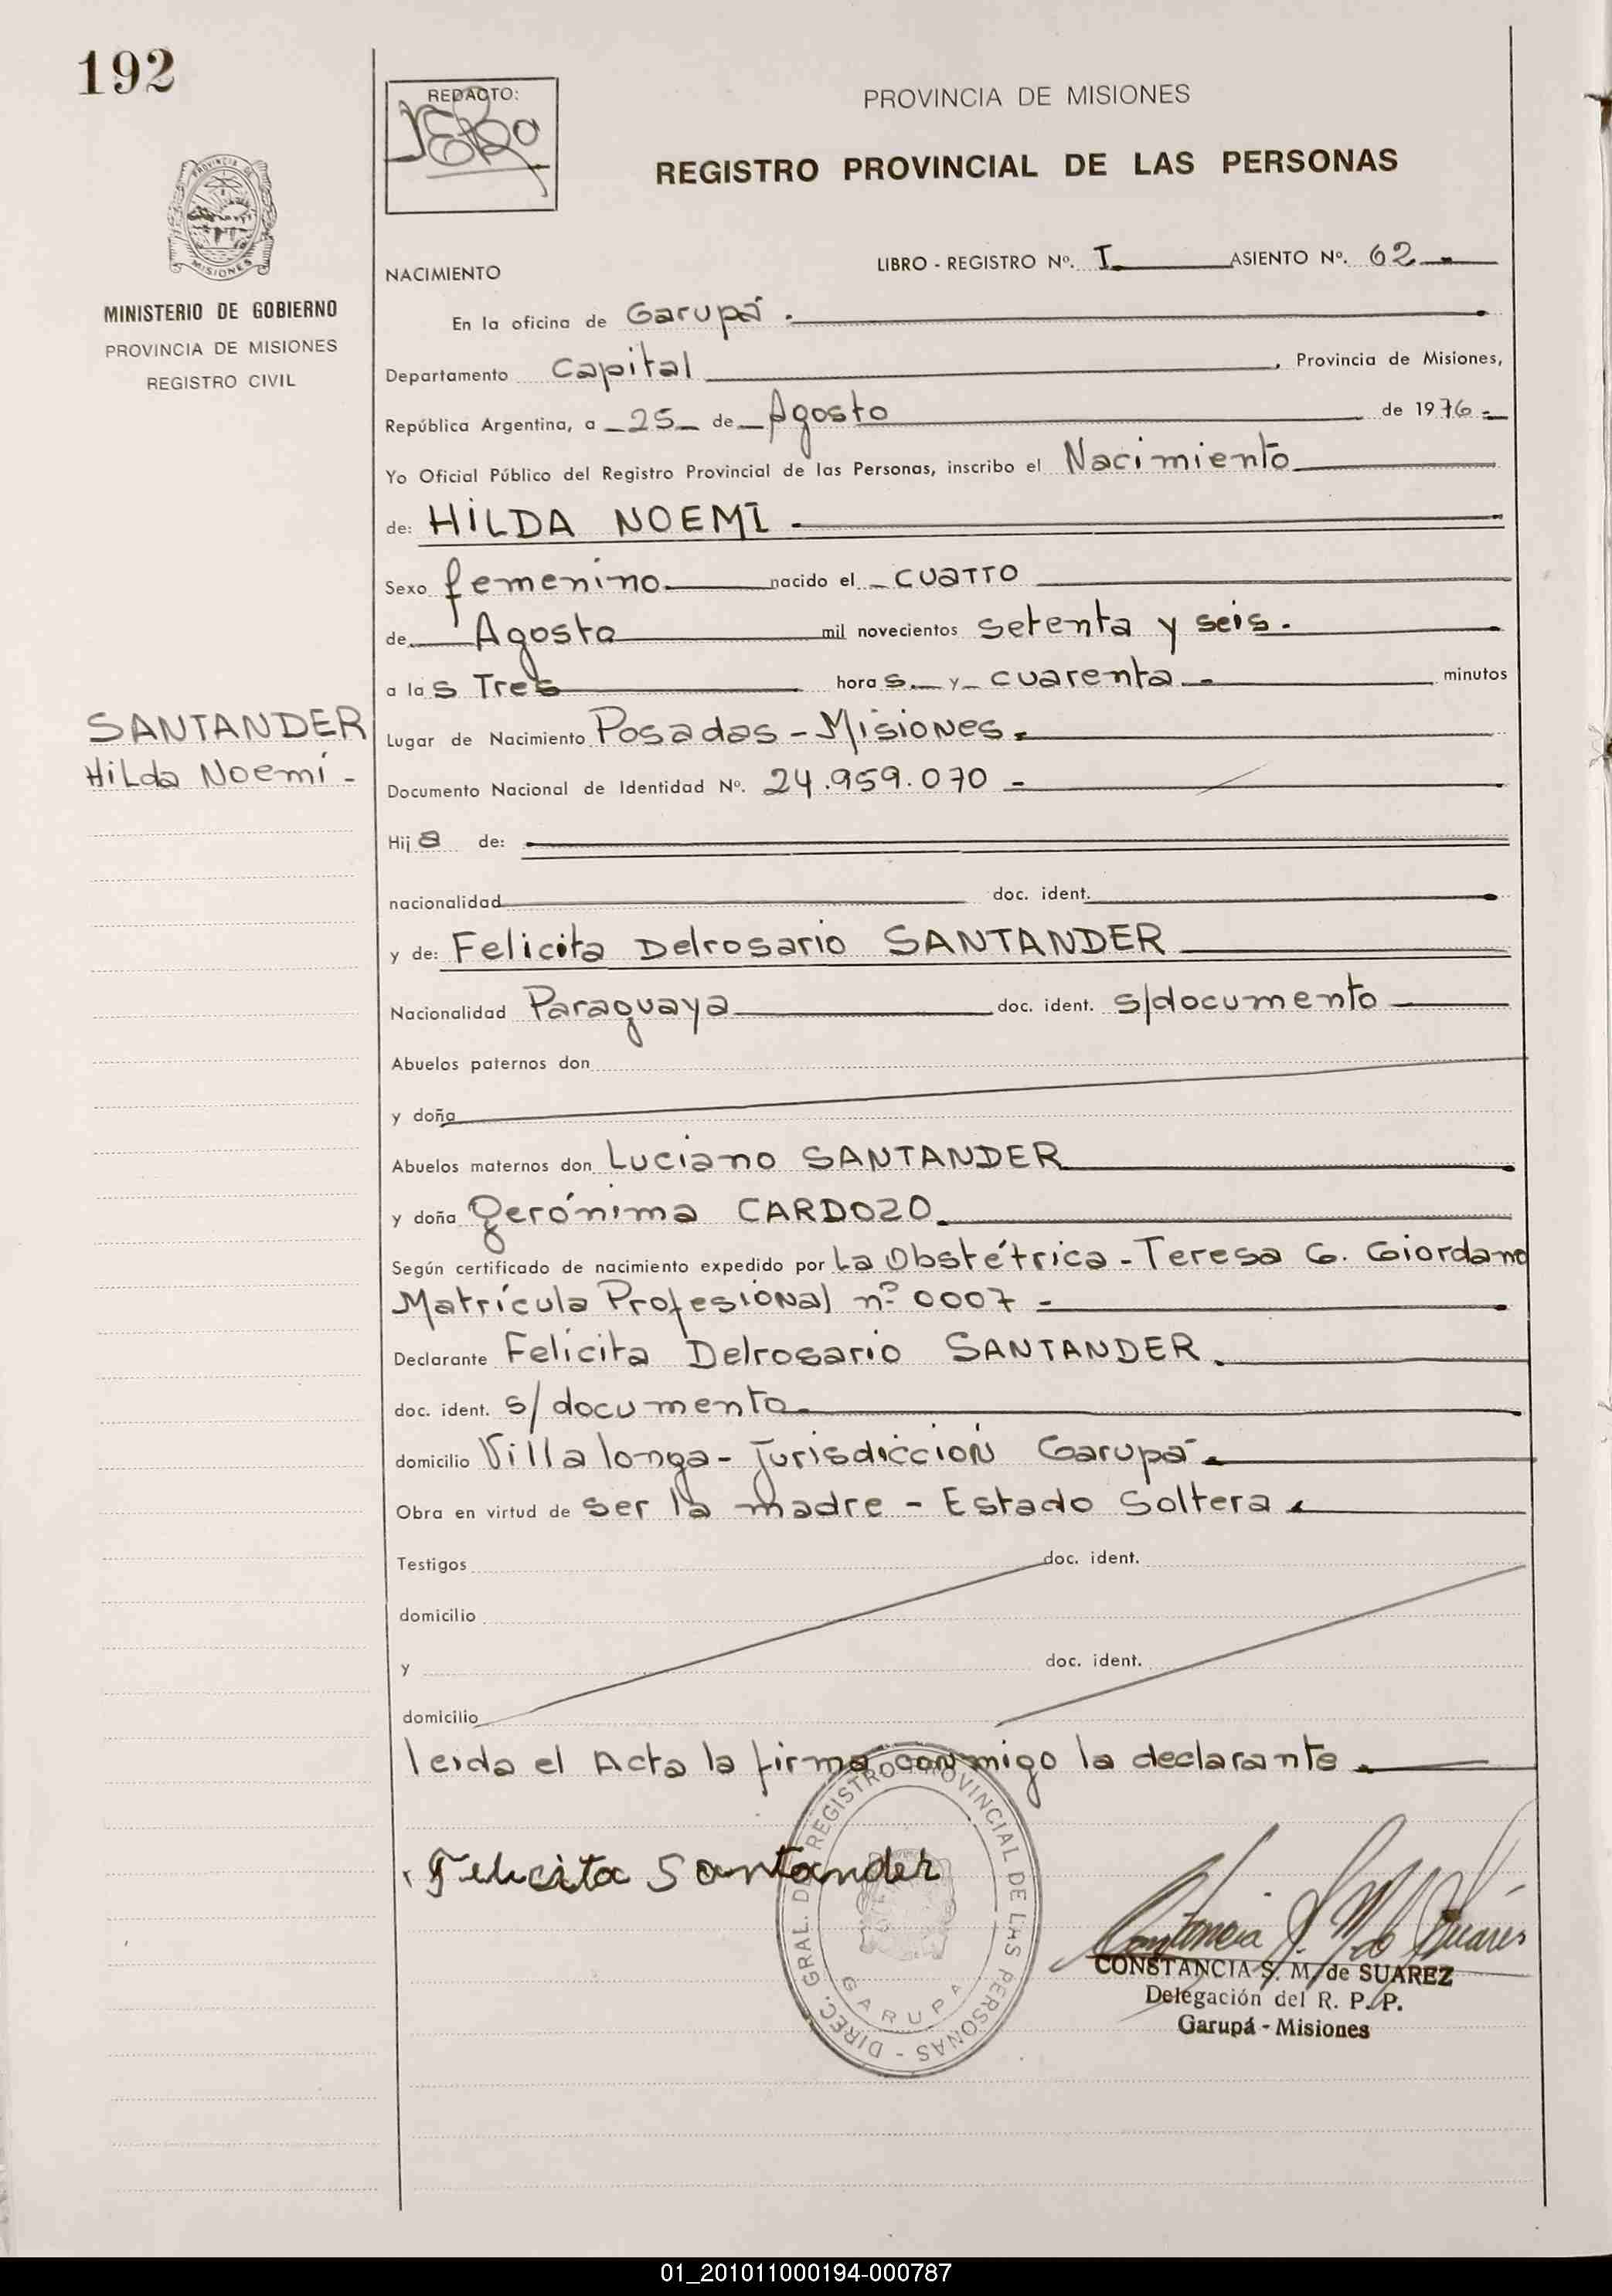 192
REDACTO:
PROVINCIA DE MISIONES
REGISTRO PROVINCIAL DE LAS PERSONAS
PROVINCIA DE MISIONES
MINISTERIO DE GOBIERNO
PROVINCIA DE MISIONES
REGISTRO CIVIL
NACIMIENTO
LIBRO - REGISTRO Nº. I ASIENTO Nº. 62
En la oficina de Garupá.
Departamento Capital, Provincia de Misiones,
República Argentina, a 25 de Agosto de 1976
Yo Oficial Público del Registro Provincial de las Personas, inscribo el Nacimiento
de: HILDA NOEMÍ
Sexo femenino nacido el cuatro
de Agosto mil novecientos setenta y seis.
a las Tres horas y cuarenta minutos
SANTANDER
Hilda Noemí -
Lugar de Nacimiento Posadas - Misiones.
Documento Nacional de Identidad Nº. 24.959.070 -
Hija de:
nacionalidad doc. ident.
y de: Felicita Delrosario SANTANDER
Nacionalidad Paraguaya doc. ident. s/documento
Abuelos paternos don
y doña
Abuelos maternos don Luciano SANTANDER
y doña Gerónima CARDOZO.
Según certificado de nacimiento expedido por La Obstétrica - Teresa G. Giordano
Matrícula Profesional nº 0007 -
Declarante Felicita Delrosario SANTANDER.
doc. ident. s/documento
domicilio Villa longa - Jurisdicción Garupá.
Obra en virtud de ser la madre - Estado Soltera.
Testigos doc. ident.
domicilio
y doc. ident.
domicilio
leída el Acta la firma conmigo la declarante.
Felicita Santander
DIREC. GRAL. DEL REGISTRO PROVINCIAL DE LAS PERSONAS -
GARUPA
Constancia S. M. de Suarez
CONSTANCIA S. M. de SUAREZ
Delegación del R. P. P.
Garupá - Misiones
01_201011000194-000787